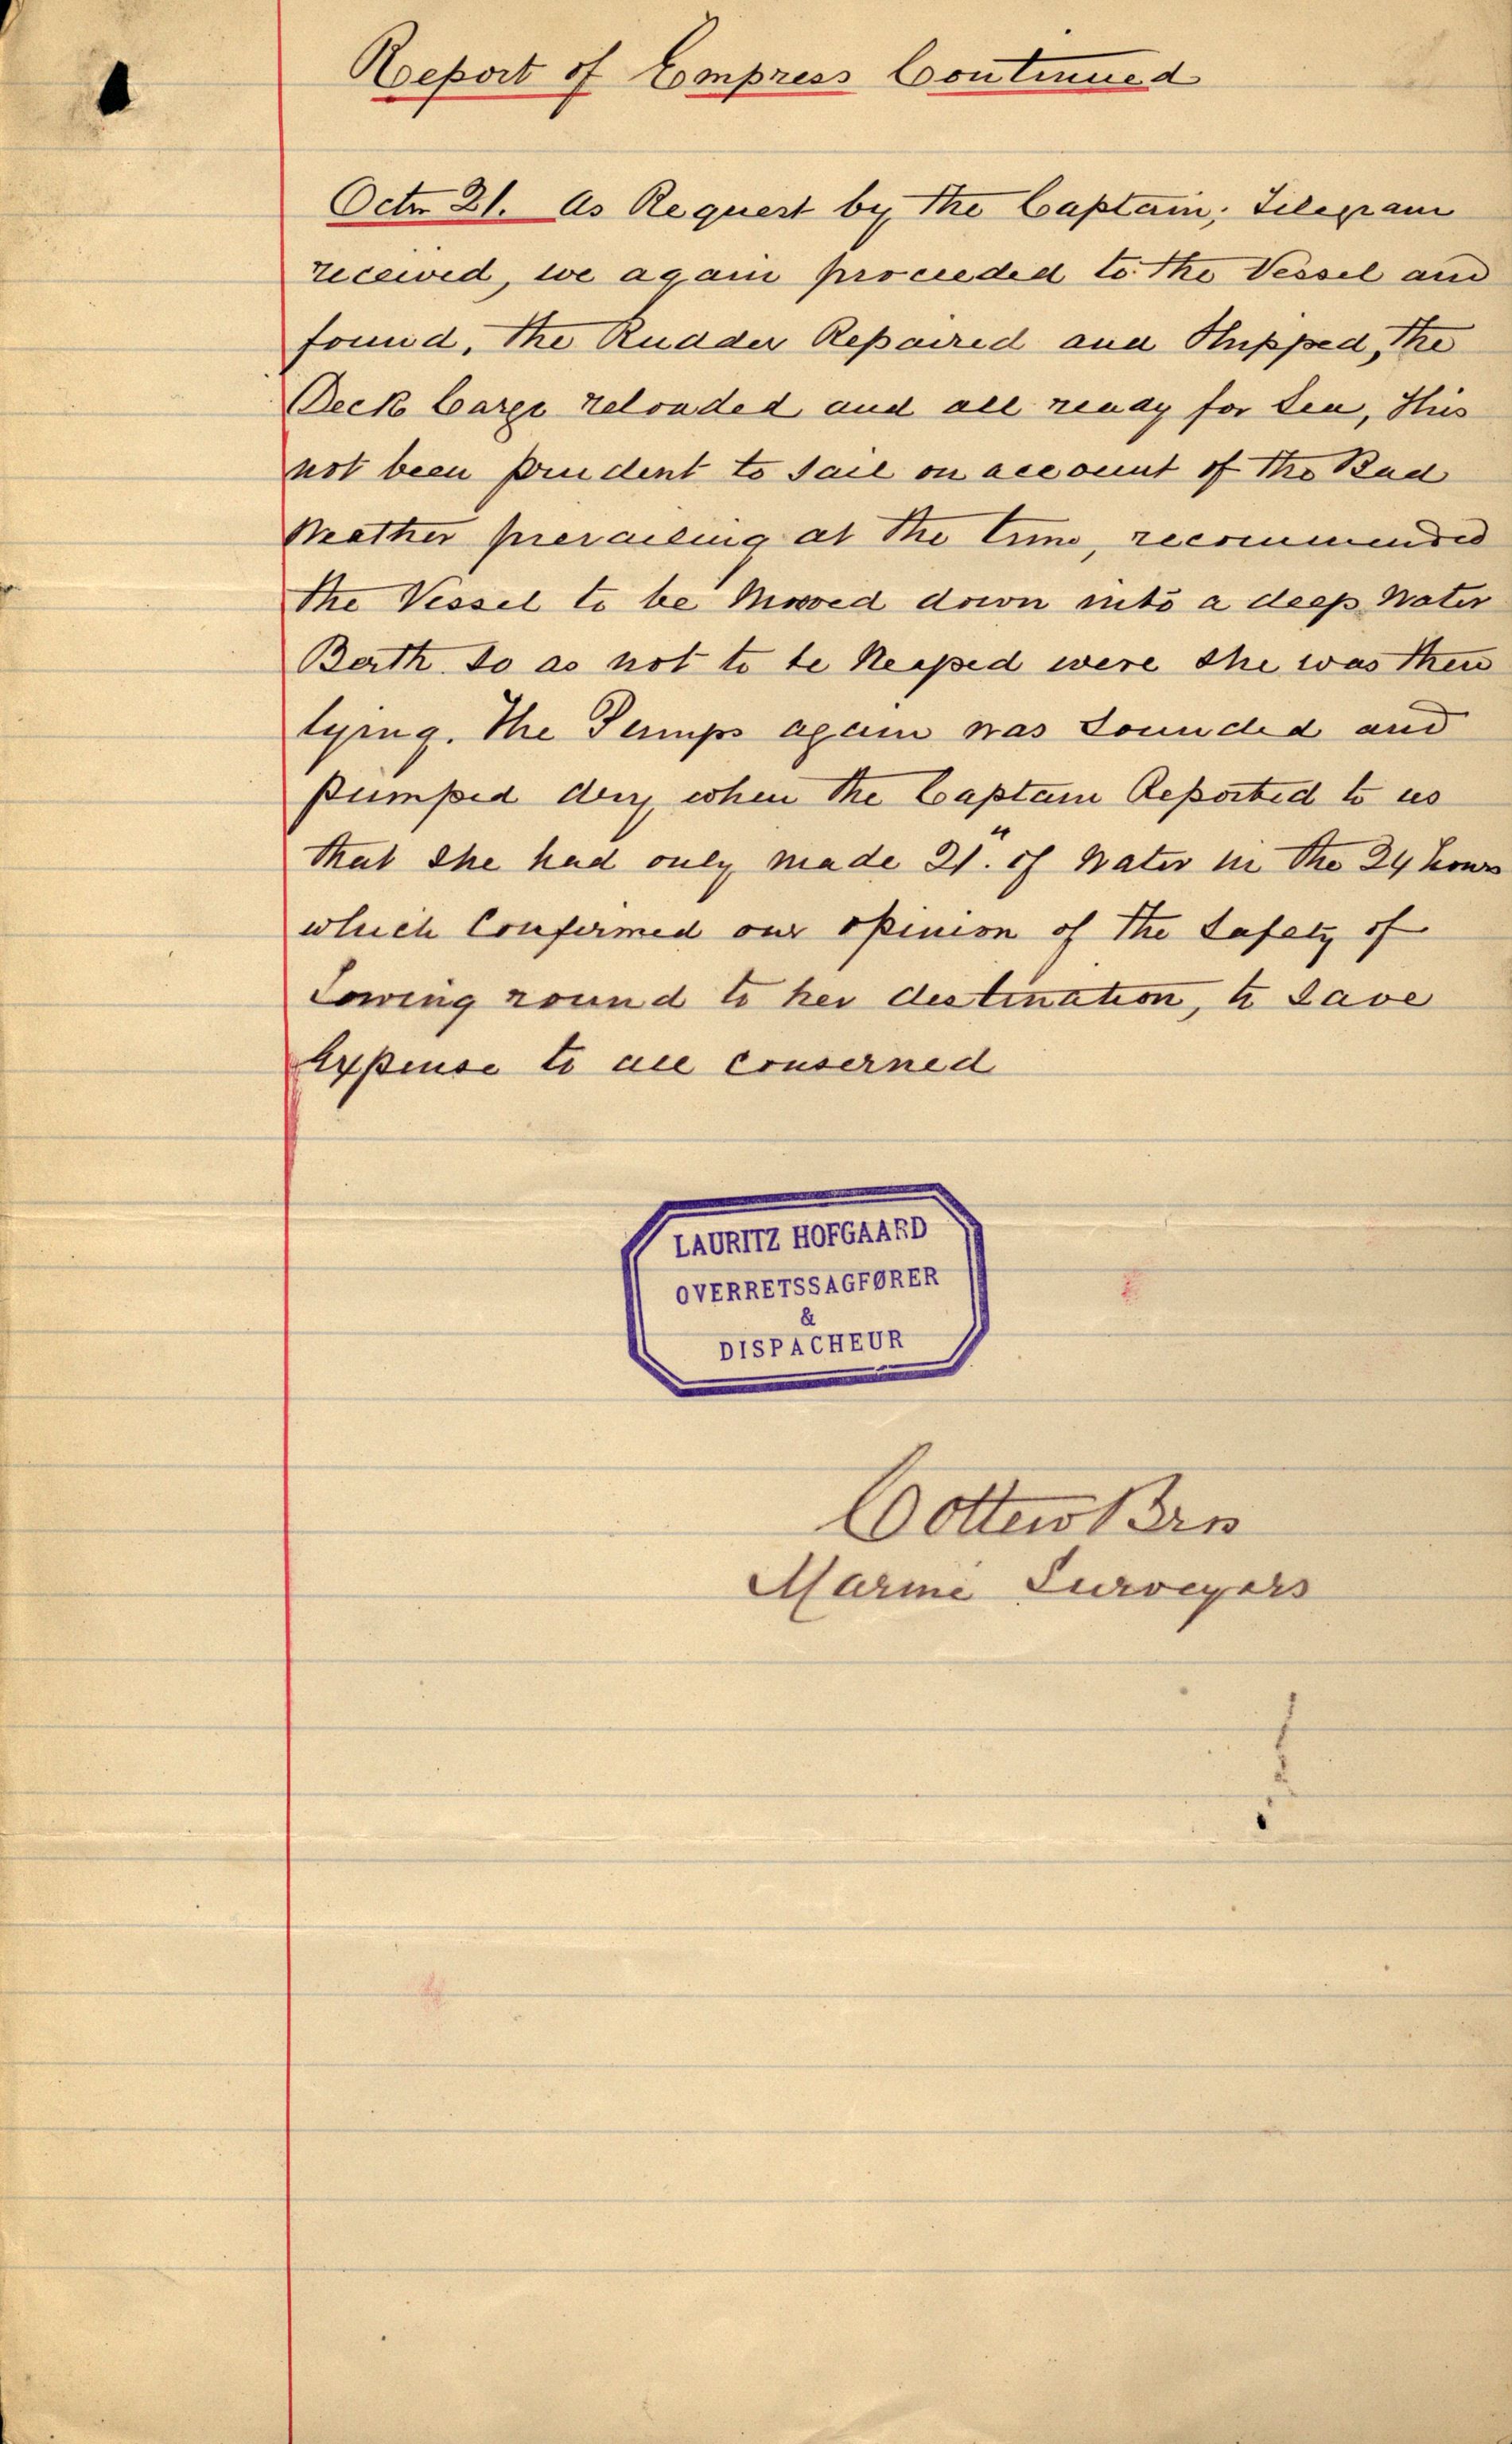 Report of Empress Continued
Octr 21. As Request by the Captain, Telegram
received, we again proceeded to the Vessel and
found, the Rudder Repaired and Shipped, the
Deck Cargo reloaded and all ready for Sea, This
not been prudent to sail on account of the Bad
Weather prevailing at the time, recommended
the Vessel to be Moved down into a deep Water
Berth so as not to be Neaped were she was then
lying. The Pumps again was Sounded and
pumped dry, when the Captain Reported to us
that she had only made 21." of Water in the 24 hours
which Confirmed our opinion of the Safety of
Towing round to her destination, to Save
Expense to all conserned
LAURITZ HOFGAARD
OVERRETSSAGFØRER
&
DISPACHEUR
Bros
Marine Surveyors